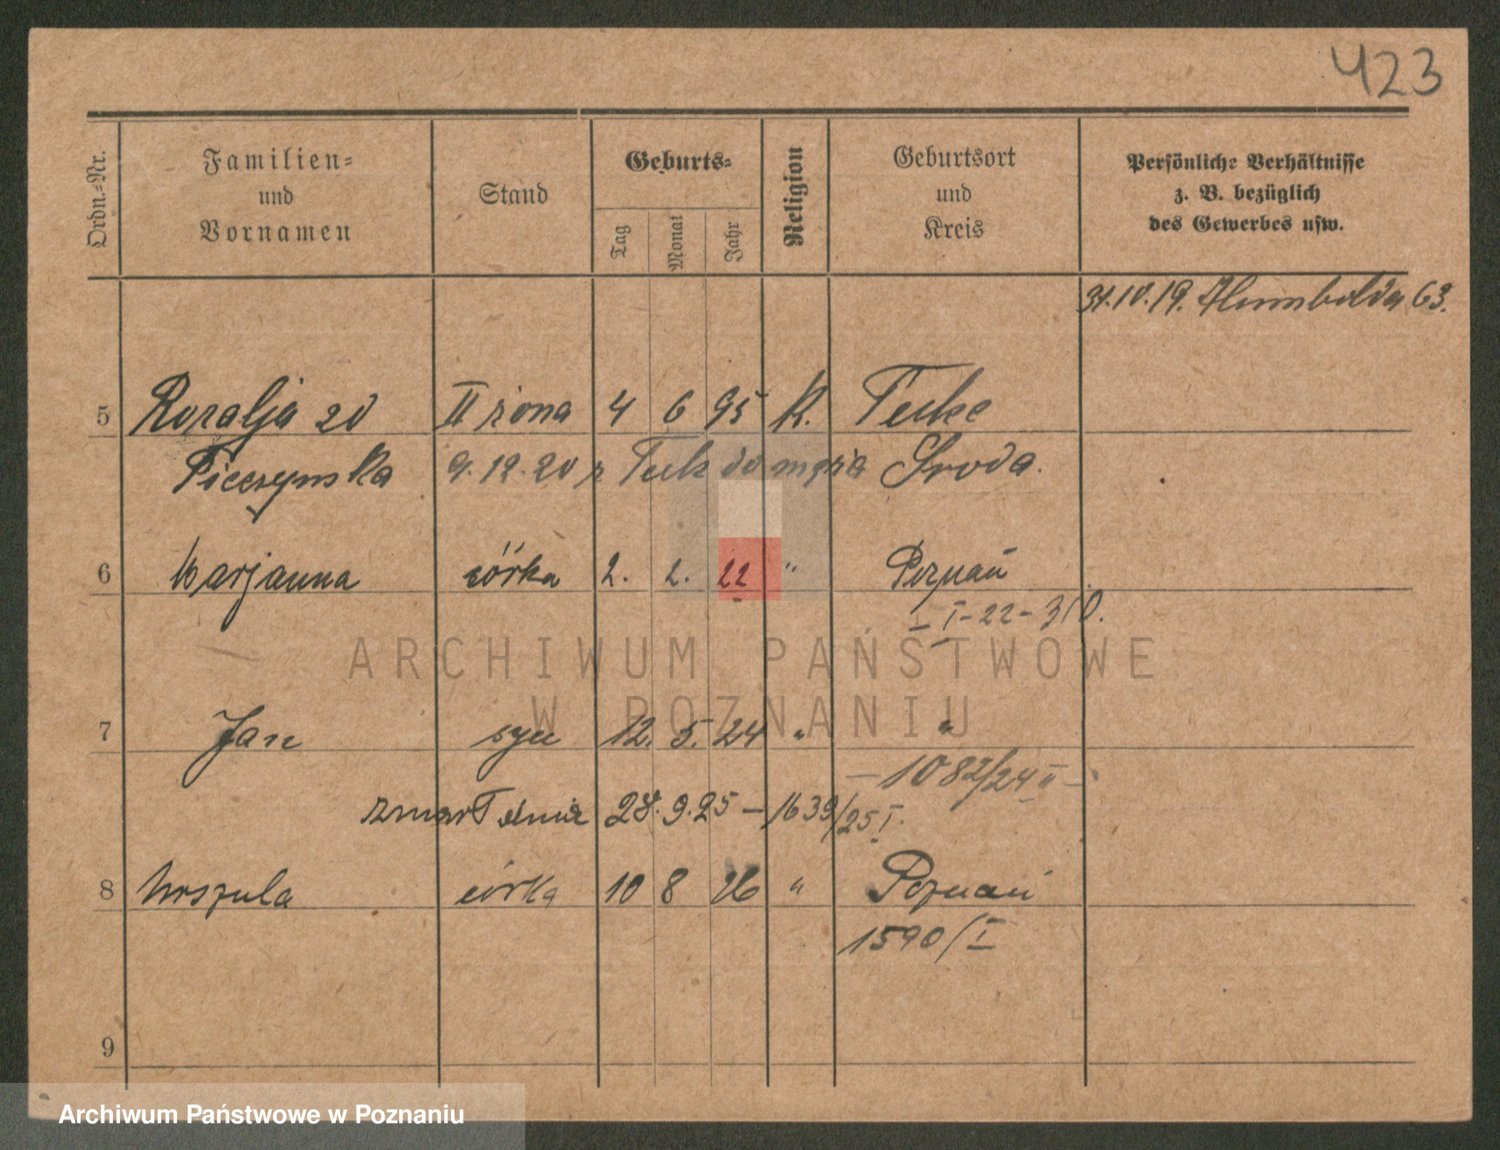 423
Ordn.-Nr.
Familien-
und
Vornamen
Stand
Geburts-
Tag
Monat
Jahr
Religion
Geburtsort
und
Kreis
Persönliche Verhältnisse
z. B. bezüglich
des Gewerbes usw.
31.10.19. Humboldta 63.
5 Rozalja zd II żona 4 6 95 K.
Pieczynska 9.12.20 z do męża Sroda.
6 Marjanna córka 2. 2. 22 " Poznań
I-22-310.
7 Jan syn 12. 5. 24 " "
-1082/24 II-
28.9.25 - 1639/25 I.
8 Urszula córka 10 8 26 " Poznań
1590/I
9
ARCHIWUM PAŃSTWOWE
W POZNANIU
Archiwum Państwowe w Poznaniu